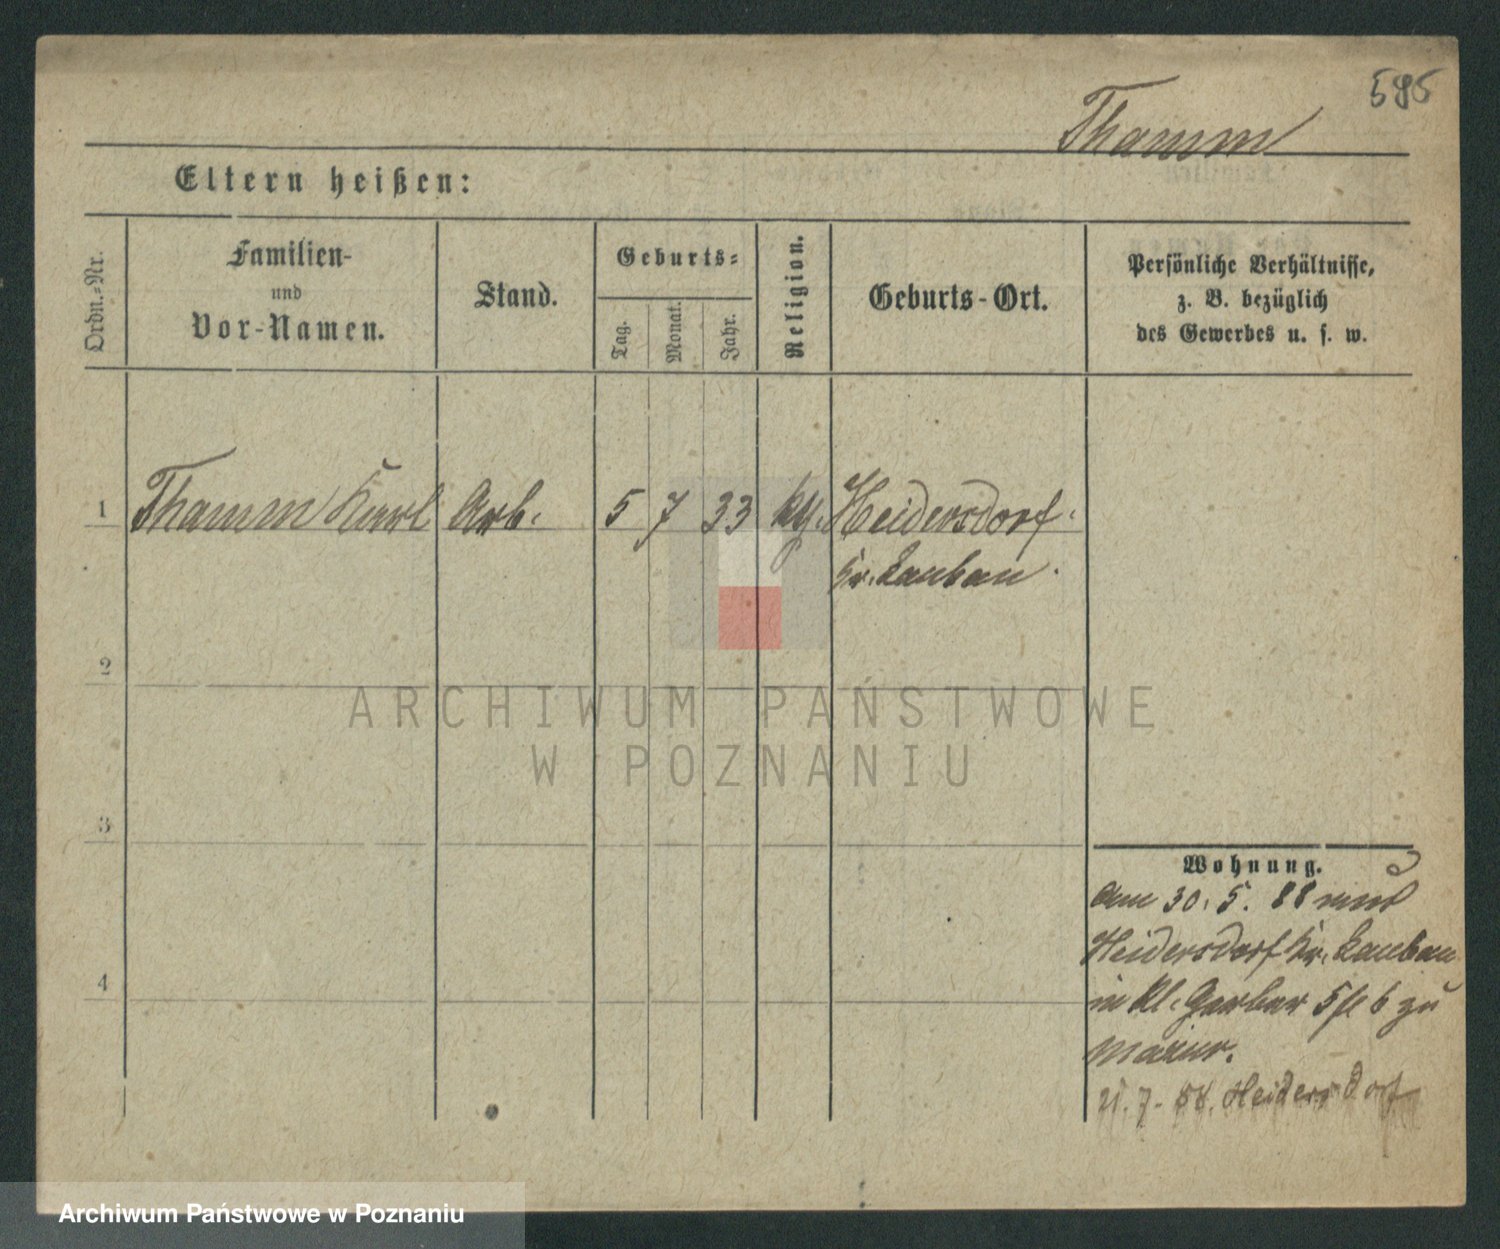 595
Thamm
Eltern heißen:
Ordn.-Nr.
Familien-
und
Vor-Namen.
Stand.
Geburts-
Tag.
Monat.
Jahr.
Religion.
Geburts-Ort.
Persönliche Verhältnisse,
z. B. bezüglich
des Gewerbes u. s. w.
1 Thamm Karl Arb. 5 7 33 Heidersdorf
Kr. Lauban.
2
3
4
ARCHIWUM PAŃSTWOWE
W POZNANIU
Wohnung.
am 30. 5. 88 aus
Heidersdorf Kr. Lauban
in Kl. Gerber 5 6 zu
21. 7. 88. Heidersdorf
Archiwum Państwowe w Poznaniu